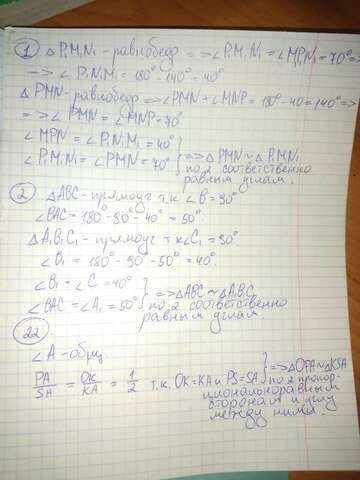 ① △ P₁M₁N₁ - равнобедр => ∠P₁M₁N₁ = ∠M₁P₁N₁ = 70° =>
=> ∠ P₁N₁M₁ = 180° - 140° = 40°
△ PMN - равнобедр => ∠PMN + ∠MNP = 180° - 40 = 140° =>
=> ∠ PMN = ∠MNP = 70°
∠ MPN = ∠ P₁N₁M₁ = 40°
∠ P₁M₁N₁ = ∠PMN = 70° } => △PMN ~ △P₁M₁N₁
по 2 соответственно
равным углам.
② △ABC - прямоуг т.к. ∠B = 90°
∠BAC = 180° - 90° - 40° = 50°
△A₁B₁C₁ - прямоуг т.к ∠C₁ = 90°
∠B₁ = 180° - 90° - 50° = 40°.
∠B₁ = ∠C = 40°
∠BAC = ∠A₁ = 50° } => △ABC ~ △A₁B₁C₁
по 2 соответственно
равным углам
22
∠A - общ
PA/SA = OK/KA = 1/2 т.к. OK = KA и PS = SA } => △OPA ~ △KSA
по 2 пропор-
циональноравным
сторонам и углу
между ними.